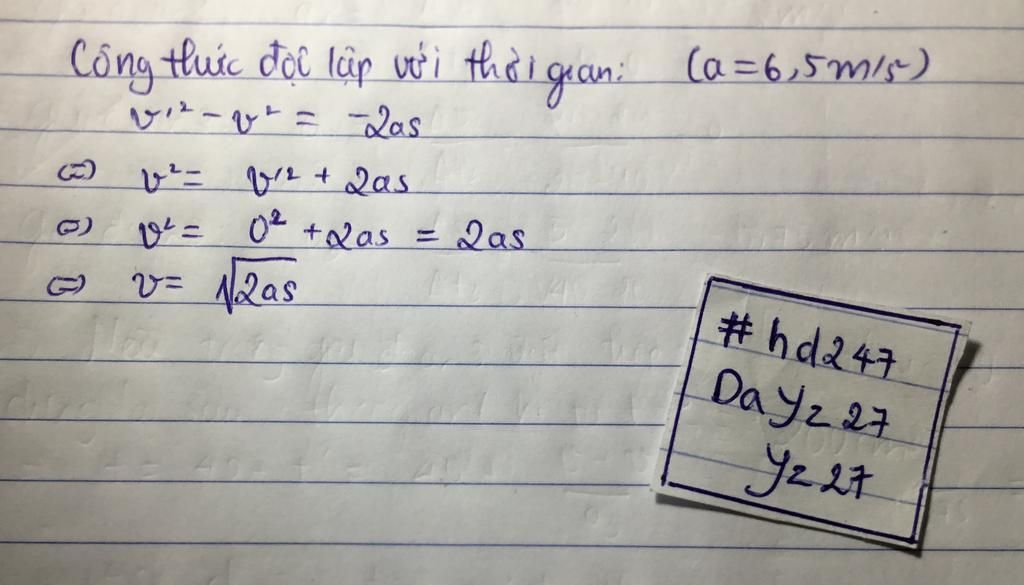 Công thức độc lập với thời gian: (a = 6,5 m/s)
v'² - v² = -2as
⇔ v² = v'² + 2as
⇔ v² = 0² + 2as = 2as
⇔ v = √2as
#hd247
Dayz27
yz27